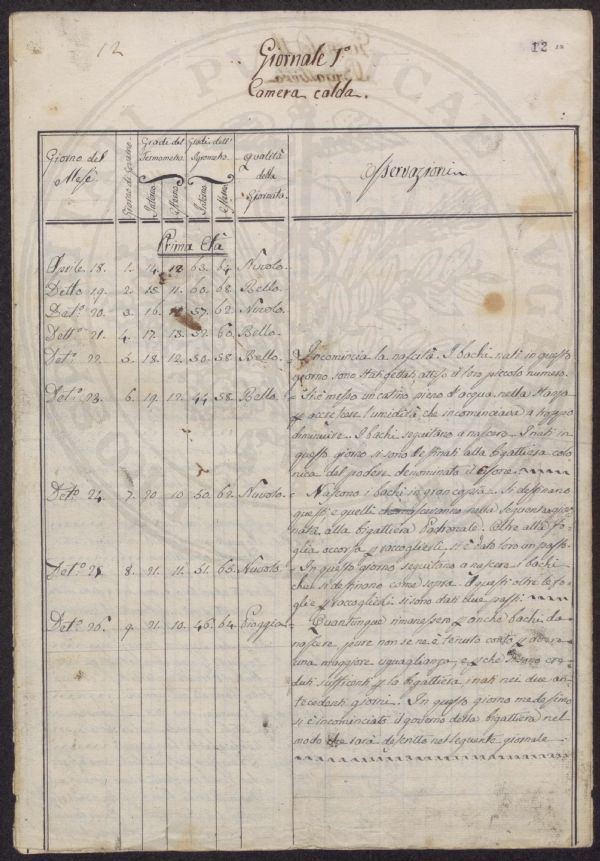 12
12
Giornale 1º
Camera calda.
Giorno del Mese
Giorno di Governo
Gradi del Termometro
Interno
Esterno
Gradi dell' Igrometro
Interno
Esterno
Qualità della Giornata
Osservazioni
Prima Età
Aprile 18. 1. 14. 12 63. 64. Nuvolo.
Detto 19. 2. 15. 11. 60. 68. Bello.
Dettº 20. 3. 16. 57. 62. Nuvolo.
Dettº 21. 4. 17. 13. 52. 60. Bello.
Detº 22. 5. 18. 12. 50. 58. Bello. Incomincia la nascita. I bachi nati in questo
giorno sono stati gettati, atteso il loro piccolo numero.
Detº 23. 6. 19. 12. 44. 58. Bello. Si è messo un catino pieno d'acqua nella stanza
accrescere l'umidità che incominciava a troppo
diminuire. I bachi seguitano a nascere. I nati in
questo giorno si sono destinati alla bigattiera colo
nica del podere denominato il
Detº 24. 7. 20 10 50. 62. Nuvolo. Nascono i bachi in gran copia. Si destinano
questi e quelli che nasceranno nella seguente gior
nata, alla bigattiera Padronale. Oltre alla fo
glia occorsa p raccoglierli, si è dato loro un pasto.
Detº 25 8. 21. 11. 51. 65. Nuvolo. In questo giorno seguitano a nascere i bachi
che si destinano come sopra. A questi oltre le fo
glie p raccoglierli si sono dati due pasti.
Detº 26. 9. 21. 10. 46. 64. Pioggia. Quantunque rimanessero anche bachi da
nascere, pure non se ne è tenuto conto p avere
una maggiore uguaglianza, e p chè si sono cre
duti sufficenti p la bigattiera i nati nei due an
tecedenti giorni. In questo giorno medesimo
si è incominciato il governo della bigattiera nel
modo che sarà descritto nel seguente giornale.